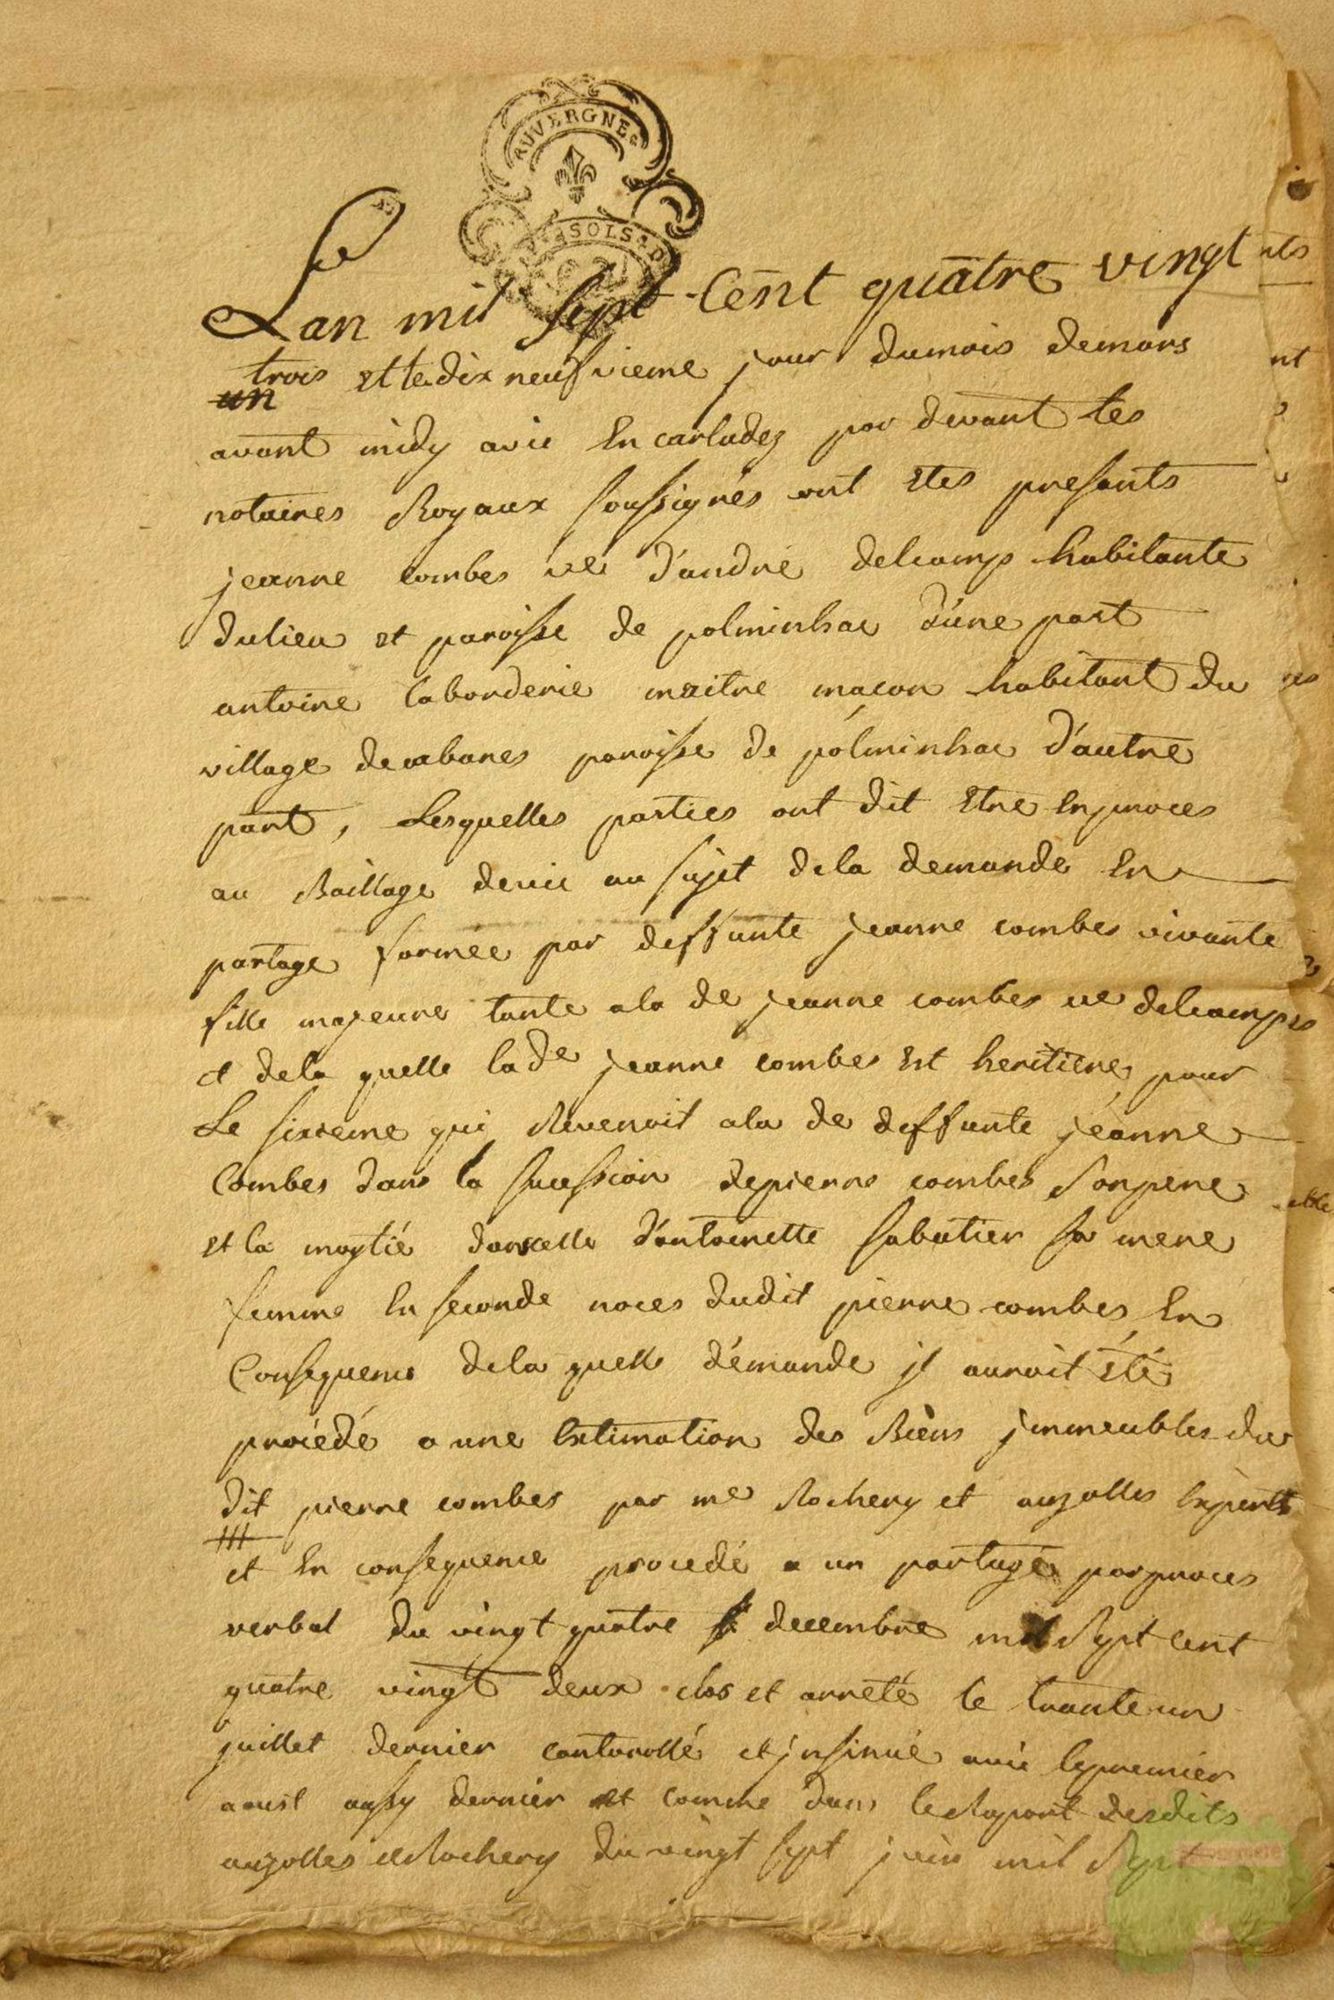 AUVERGNE
SOLS D
Lan mil Sept Cent quatre vingt
trois et le dix neufvieme jour du mois de mars
un
avant midy a vic En carladez par devant les
notaires Royaux soussignés ont Etes presents
jeanne combes ve d'andré delcamp habitante
du lieu et paroisse de polminhac d'une part
antoine laborderie maitre maçon habitant du
village de cabanes paroisse de polminhac d'autre
part, Lesquelles parties ont dit Etre En proces
au Baillage de vic au sujet de la demande En
partage formée par deffunte jeanne combes vivante
fille majeure tante a la de jeanne combes ve delcamps
et de la quelle la de jeanne combes Est heritiere pour
Le sixieme qui Revenoit a la de deffunte jeanne
Combes dans la sucession de pierre combes Son pere
et la moytié dans celle d'antoinette sabatier sa mere
femme En seconde noces dudit pierre combes, En
Consequence de la quelle démande jl auroit été
procédé a une Estimation des Biens jmmeubles du
dit pierre combes par me Rochery et auzolles Experts
et En consequence procedé a un partage par proces
verbal du vingt quatre decembre mil Sept cent
quatre vingt deux clos et arreté le trante un
juillet dernier controllé et jnsinué a vic le premier
aoust aussy dernier et comme dans le Raport desdits
auzolles et Rochery du vingt sept juin mil Sept